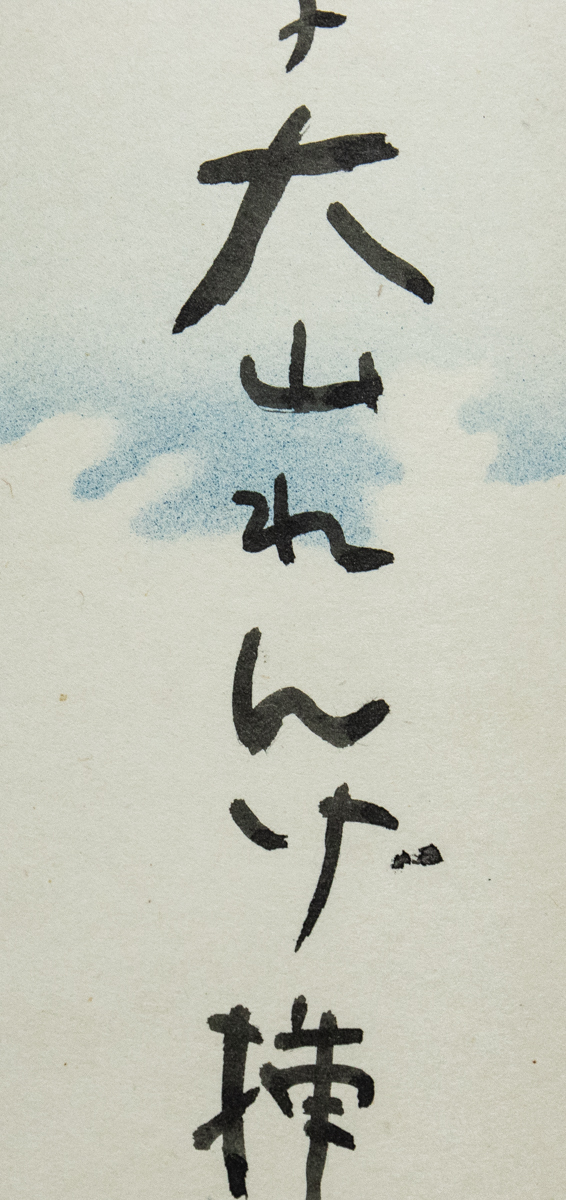 大山れんげ